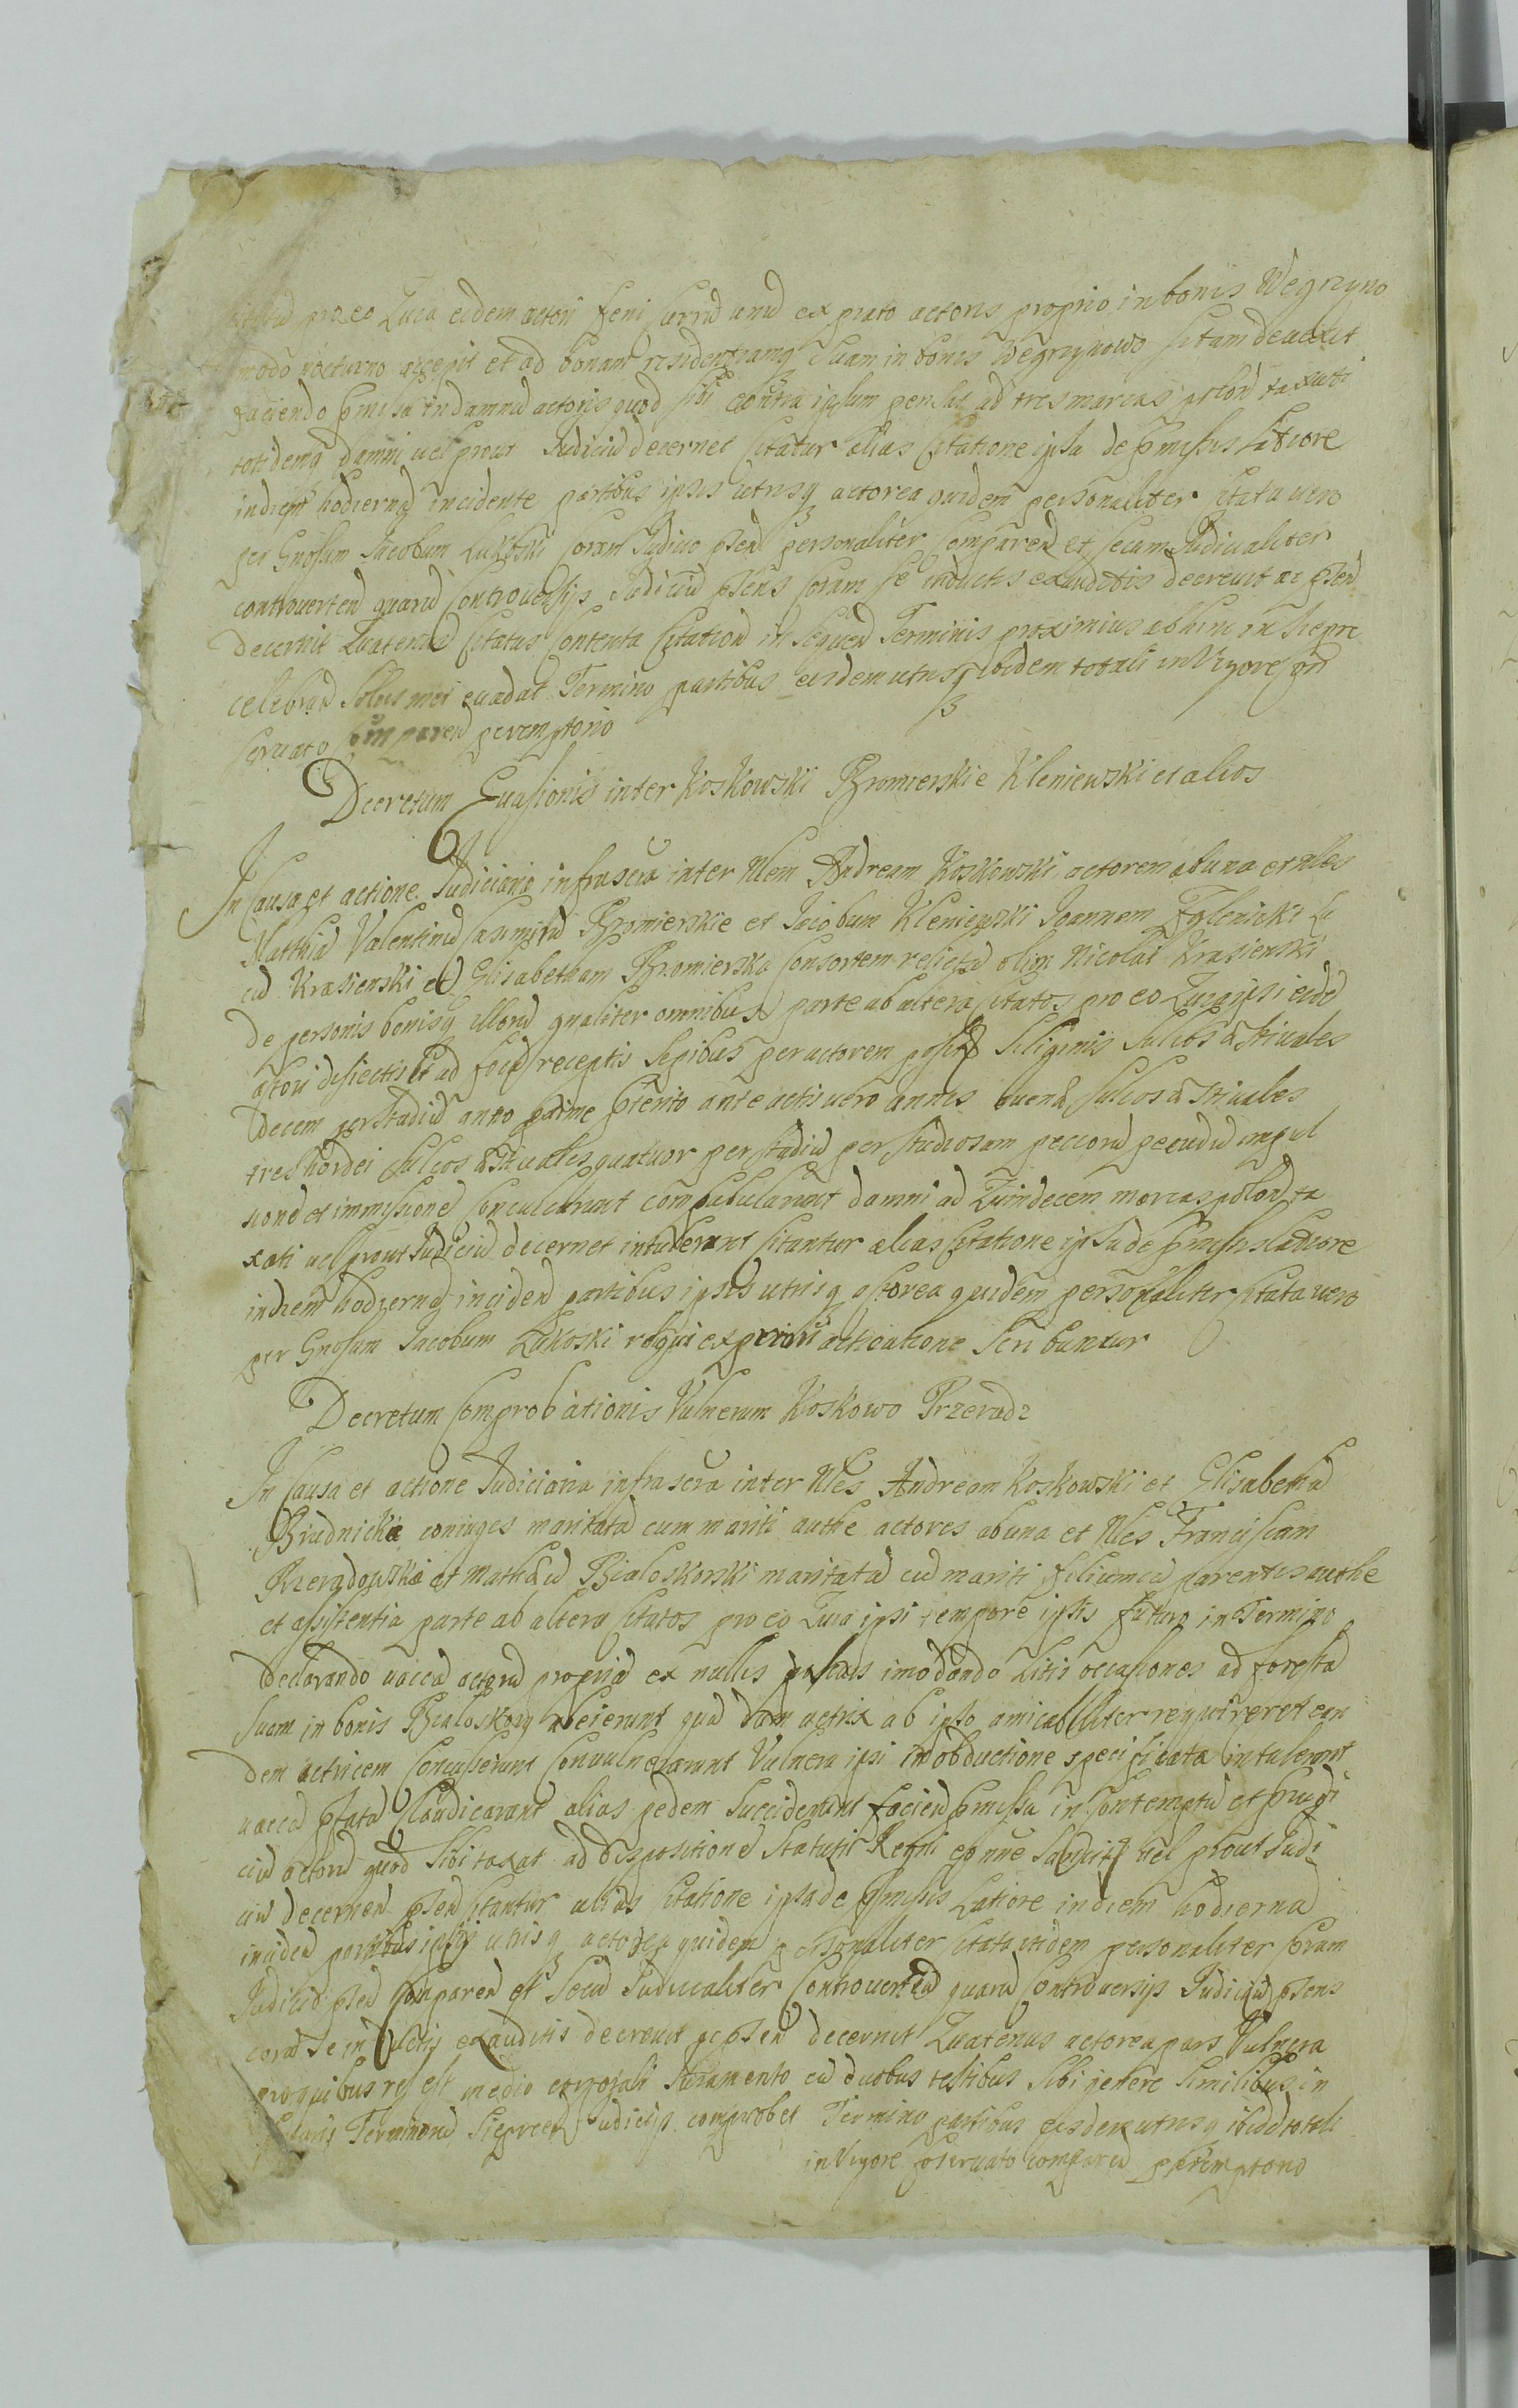 pro eo Quia eidem actori feni currũ unũ ex prato actoris proprio in bonis Węgrzyno
modo nocturno accepit et ad bonam residentiamq suam in bonis Węgrzynowo sitam deuexit
faciendo pmissa in damnũ actoris quod sibi contra ipsum pensat ad tres marcas polon taxati
totidemq damni uel prout Judiciũ decernet citatur alias citatione ipsa de pmissis latiore
in diem hodiernã incidente partibus ipsis utrisq actorea quidem personaliter citata uero
per Gnosum Jacobum Lukoski coram Judicio psenti personaliter comparen et secum Judicialiter
controuerten quarũ controuersijs Judiciũ psens coram se inductis exauditis decreuit ac psen
decernit Quatenus citatus contenta citationis in sequen Terminis proximius abhinc in Siepre
celebran Solus met euadat Termino partibus eisdem utrisq ibidem totali in Vigore
seruato comparen peremptorio
Decretum Euasionis inter Koskowski Bromierskie Kleniewski et alios
In Causa et actione Judiciaria infrascra inter Nlem Andream Koskowski actorem ab una et Nles
Matthiã Valentinũ Casimirũ Bromierskie et Jacobum Kleniewski Joannem Zgleniczki Lu
cã Krasienski et Elisabetham Bromierska Consortem relictã olim Nicolai Krasienski
de personis bonisq illorũ qualiter omnibus parte ab altera citatos pro eo Quia ipsi eidẽ
actori disiectis et ad focũ receptis sepibus per actorem posit Siliginis Sulcos æstiuales
decem per stadiũ anno proxime pterito ante actis uero annis auenæ sulcos æstiuales
tres hordei sulcos æstiuales quatuor per stadiũ per studiosam peccorũ pecudũ impul
sionẽ et immissionẽ conculcarunt compabularunt damni ad Quindecem marcas polon ta
xati uel prout Judiciũ decernet intulerunt citantur alias citatione ipsa de pmissis latiore
in diem hodiernã inciden partibus ipsis utrisq actorea quidem personaliter citata uero
per Gnosum Jacobum Lukoski reliqua ex priori acticatione scribuntur
Decretum Comprobationis Vulnerum Koskowo Przeradz
In Causa et actione Judiciaria infrascra inter Nles Andream Koskowski et Elisabethã
Brudnicka coniuges maritatã cum mariti authe actores ab una et Nles Franciscam
Przeradowska et Mathæũ Bialoskorski maritatã cũ mariti filium cũ parentis authe
et assistentia parte ab altera citatos pro eo Quia ipsi tempore ipsis futuro in Termino
declarando uaccã actorũ propriã ex nullis imo dando Litis occasiones ad forestã
suam in bonis Bialoskory abeierunt quã dum actrix ab ipso amicabiliter requireret ean
dem actricem concusserunt conuulnerarunt Vulnera ipsi in obductione specificata intulerunt
uaccã pfatã claudicarunt alias pedem succiderunt facien pmissa in contemptũ et pjudi
ciũ actorũ quod sibi taxat ad dispositionẽ Statuti Regni eo nne sancitũ uel prout Judi
ciũ decernen psen citantur alias citatione ipsa de pmissis Latiore in diem hodiernã
inciden partibus ipsis utrisq actorea quidem personaliter citata itidem personaliter coram
Judicio psen comparen et secũ Judicialiter Controuerten quarũ Controuersijs Judiciũ psens
corã se inductis exauditis decreuit ac psen decernit Quatenus actorea pars Vulnera
pro quibus res est medio corporali Juramento cũ duobus testibus sibi genere similibus in
futuris Terminorũ Siepreen Judicijs comprobet Termino partibus eisdem utrisq ibidẽ totali
in Vigore pseruato comparen peremptorio